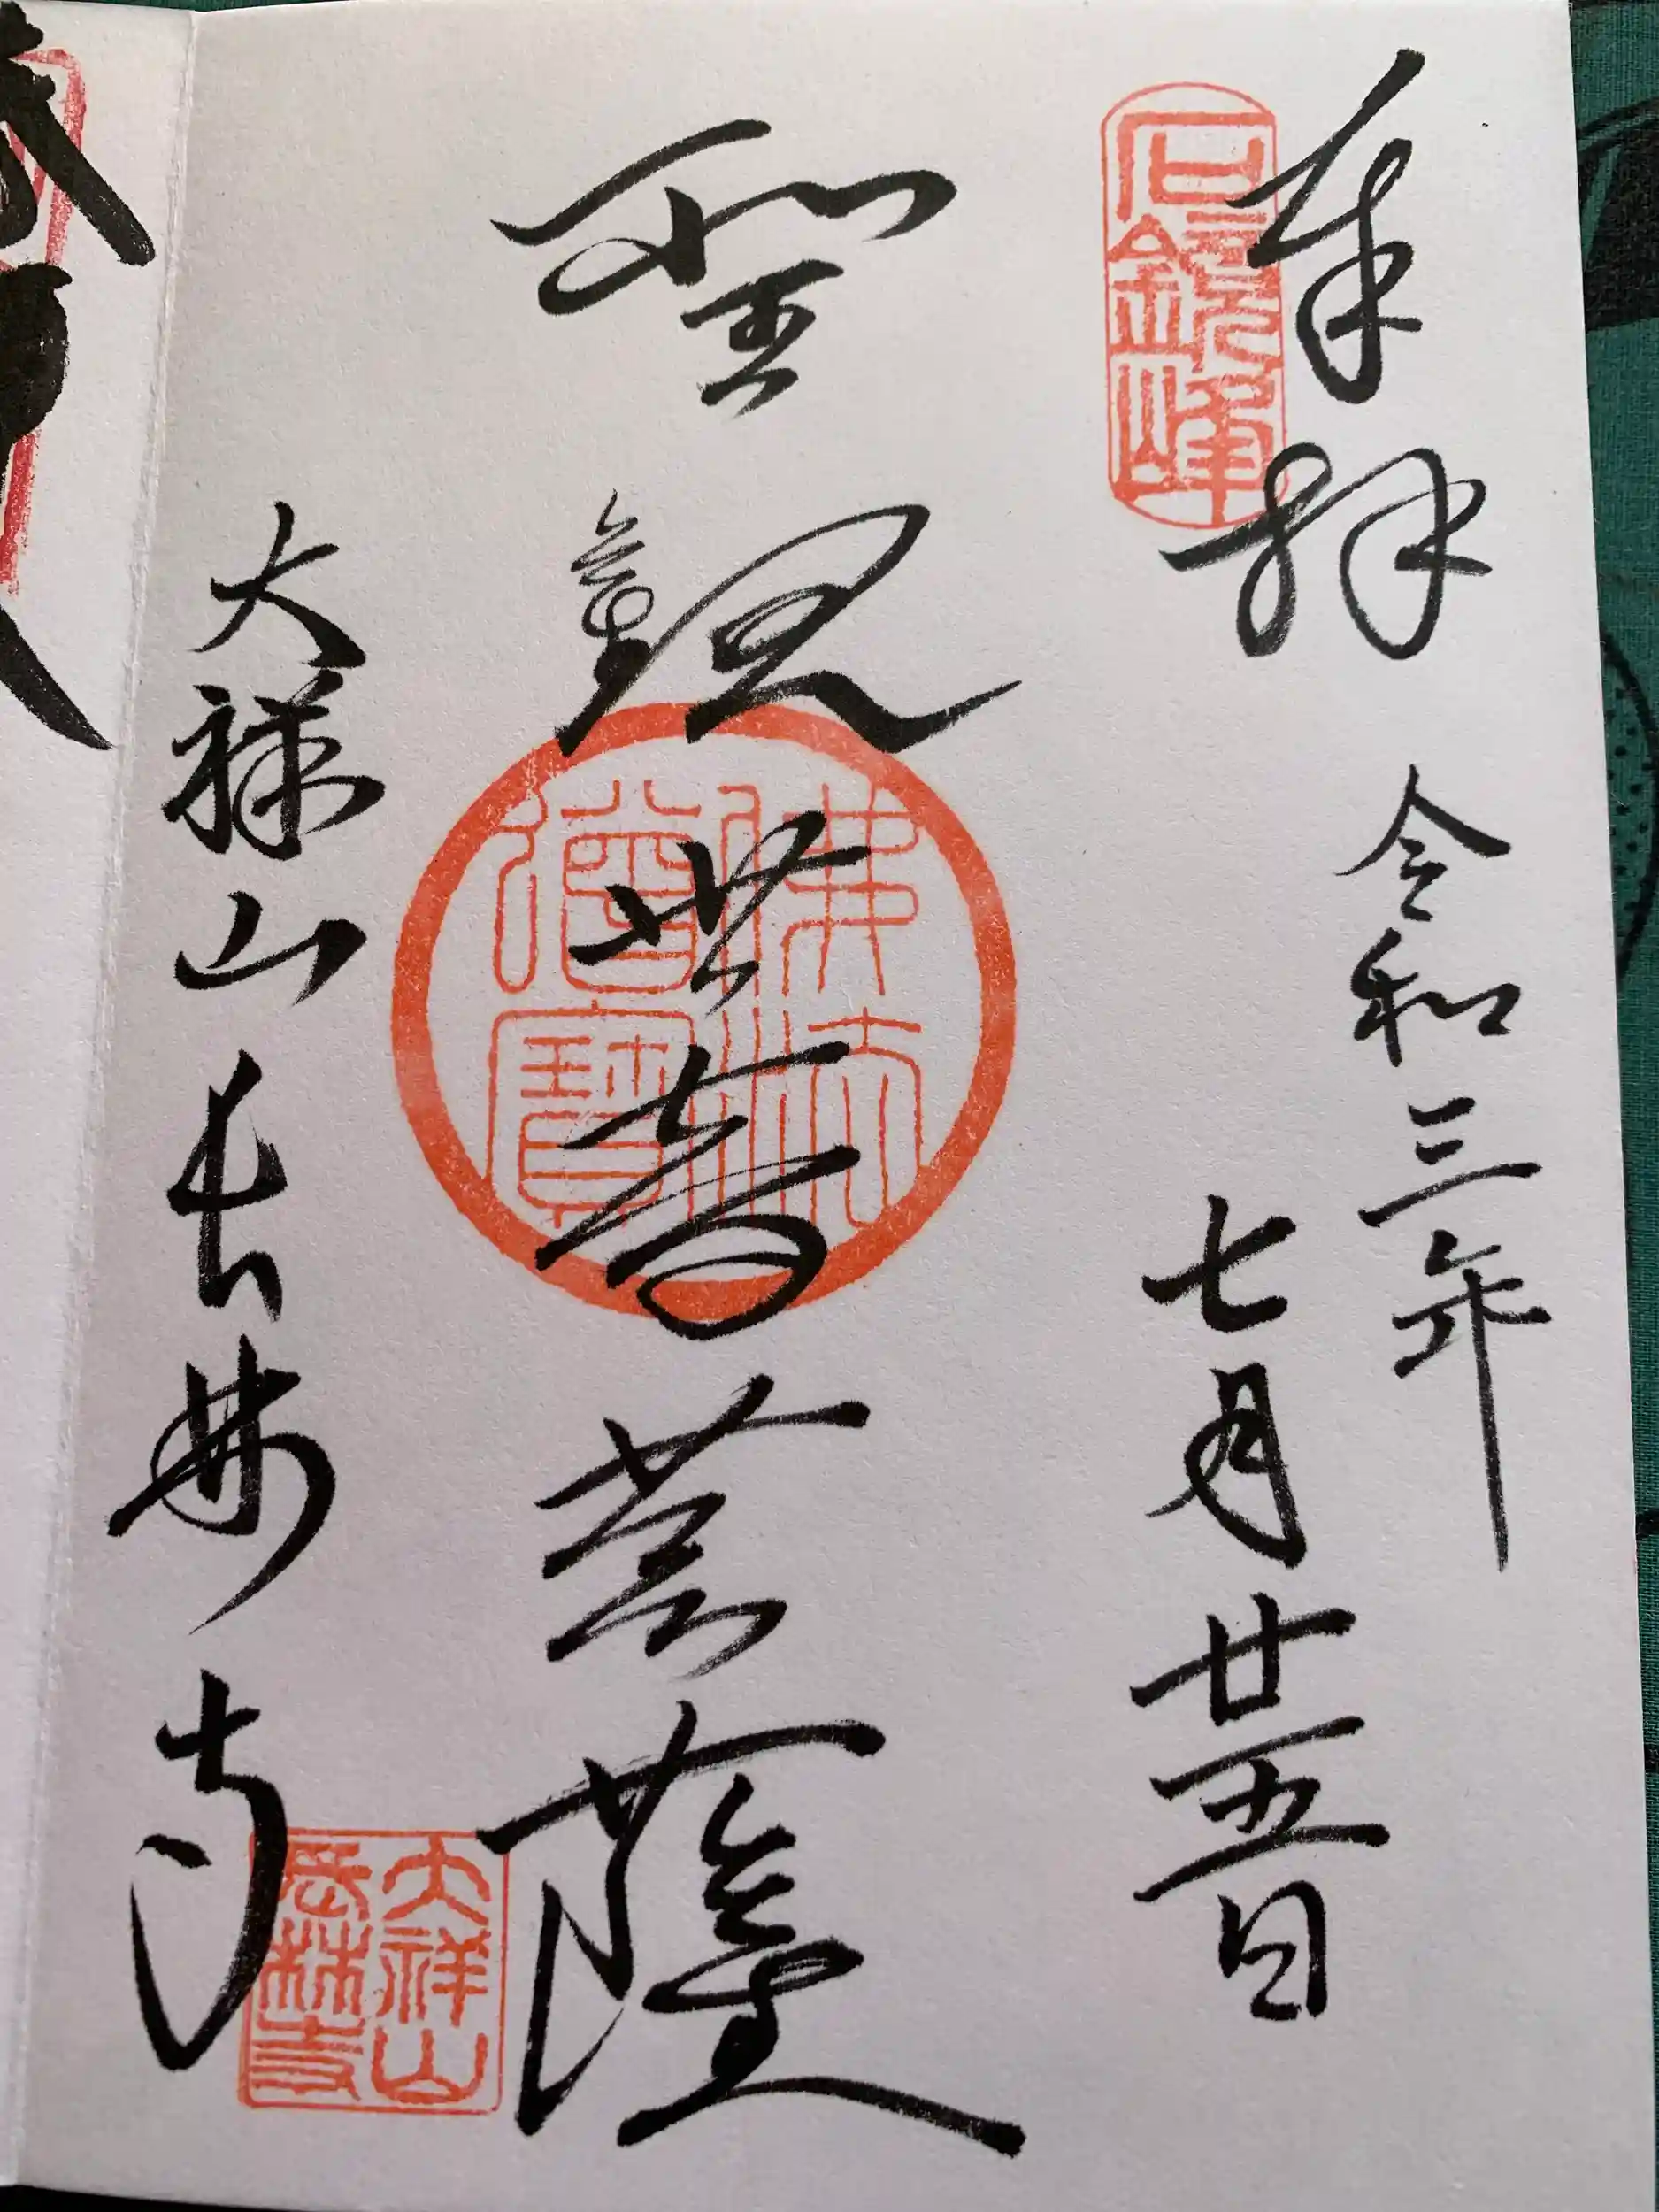 奉拝
令和三年
七月廿五日
石鏡峰
聖観世音菩薩
佛法
僧寶
大祥山長林寺
大祥山
長林寺